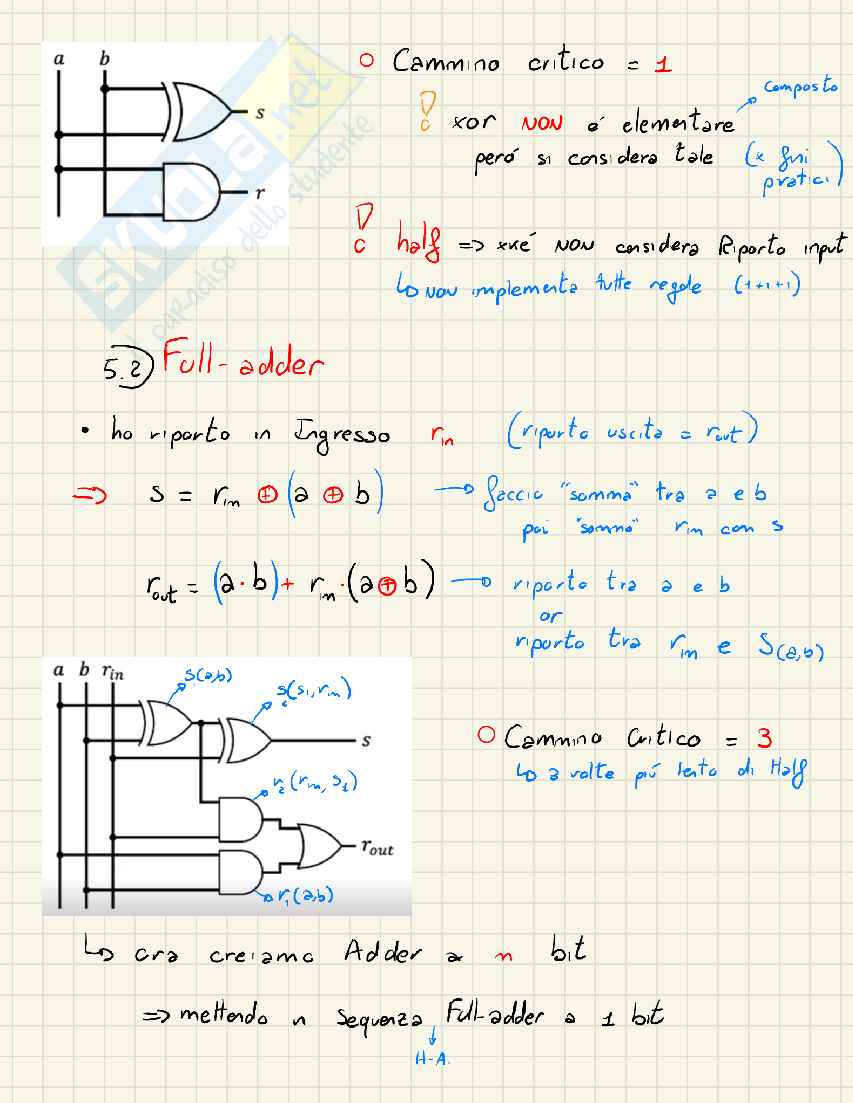 a b
s
r
SKUOLA.net
il paradiso dello studente
Cammino critico = 1
composto
! xor NON é elementare
peró si considera tale (x fini pratici)
! half => xké NON considera Riporto input
↳ NON implementa tutte regole (1+1+1)
5.2) Full-adder
• ho riporto in Ingresso r_in (riporto uscita = r_out)
=> s = r_in ⊕ (a ⊕ b) → faccio "somma" tra a e b
poi "somma" r_in con s
r_out = (a · b) + r_in · (a ⊕ b) → riporto tra a e b
or
riporto tra r_in e S(a,b)
a b r_in
S(a,b)
s₂(s₁, r_in)
s
r₂(r_in, s₁)
r_out
r₁(a,b)
Cammino Critico = 3
↳ 3 volte piú lento di Half
↳ ora creiamo Adder a n bit
=> mettendo n sequenza Full-adder a 1 bit
H-A.